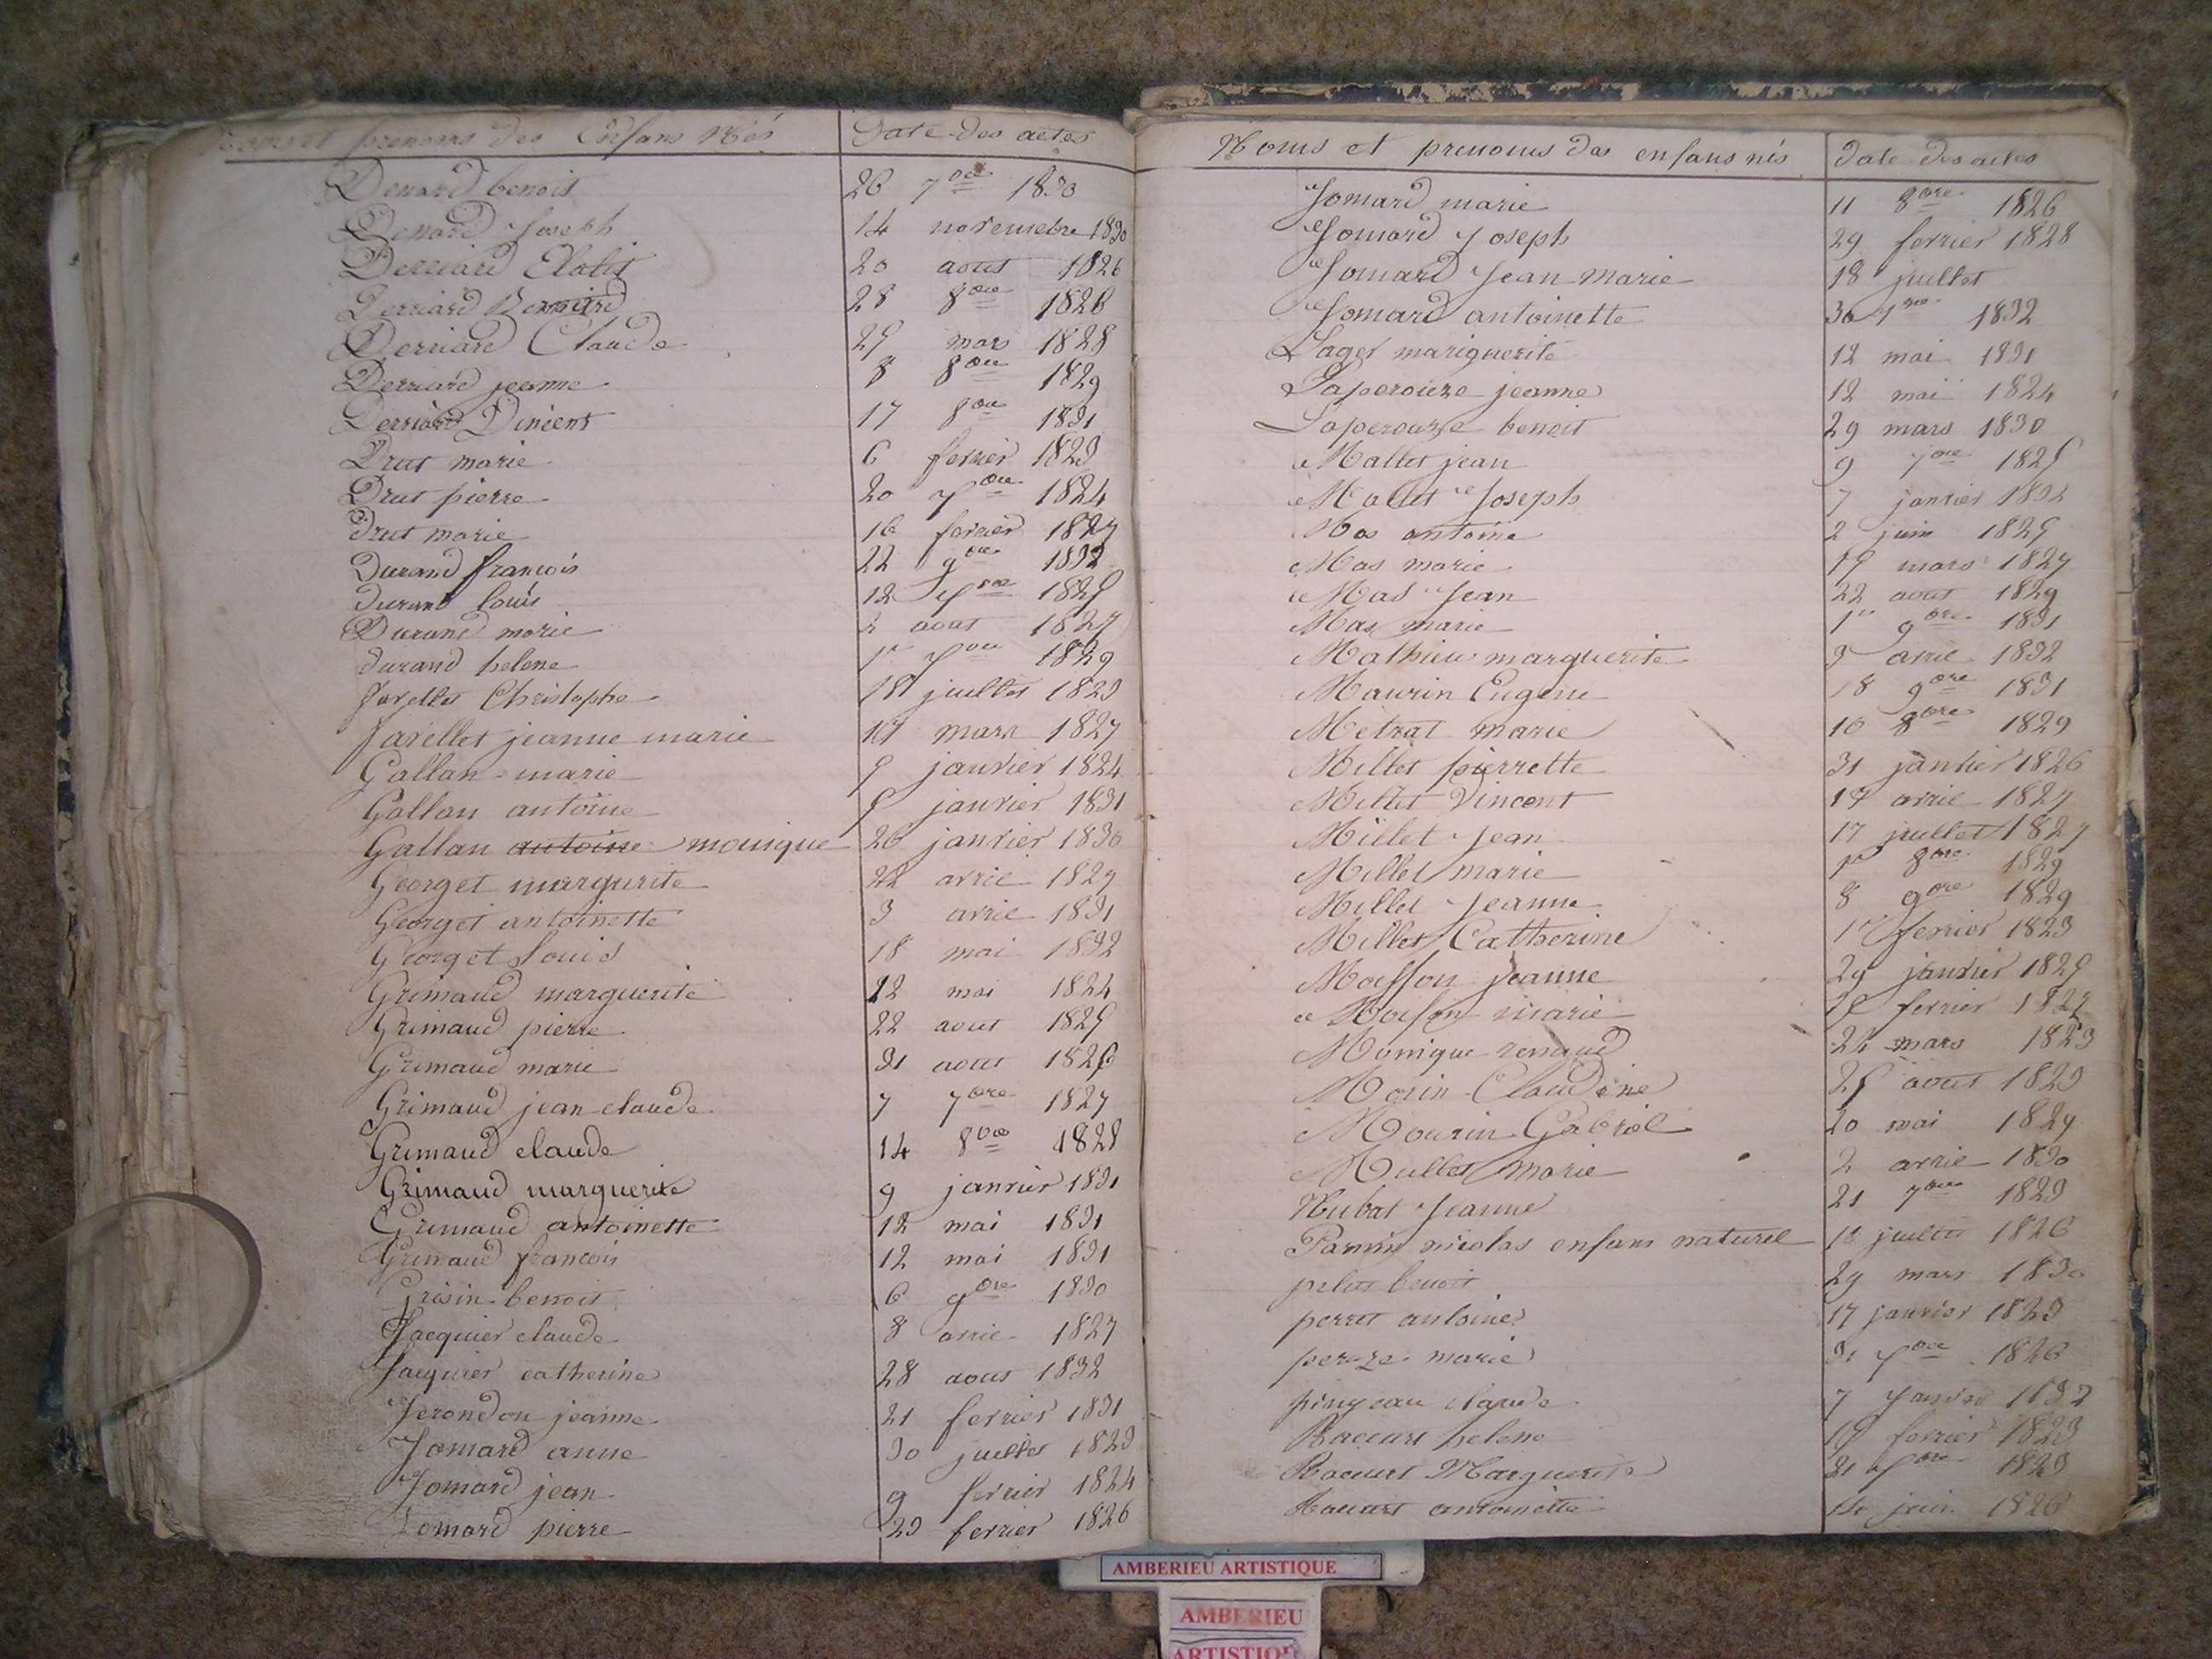 Noms et prenoms des Enfans Nés Date des actes
Denard benoit 26 7bre 1830
Denard Joseph 14 novembre 1830
Derriard 20 aout 1826
Derriard 28 8bre 1826
Derriard Claude mars 1828
Derriard jeanne 8 8bre 1829
Derriard Vincent 17 8bre 1831
Drut marie 6 fevrier 1823
Drut pierre 20 7bre 1824
Drut marie 16 fevrier 1827
Durand françois 22 9bre 1832
durand louis 12 7bre 1825
Durand marie 2 aout 1827
durand helene 1er 7bre 1829
favellet Christophe juillet 1823
favellet jeanne marie mars 1827
Gallan marie 5 janvier 1824
Gallan antoine 5 janvier 1831
Gallan antoine monique 26 janvier 1830
Georget margurite 22 avril 1829
Georget antoinette 3 avril 1831
Georget louis 18 mai 1832
Grimaud marguerite 12 mai 1824
Grimaud pierre 22 aout 1825
Grimaud marie 31 aout 1826
Grimaud jean claude 7 7bre 1827
Grimaud claude 14 8bre 1828
Grimaud marguerite 9 janvier 1831
Grimaud antoinette 12 mai 1831
Grimaud françois 12 mai 1831
Grisin benoit 6 9bre 1830
Jacquier claude 8 avril 1827
Jacquier catherine 28 aout 1832
Jerondon jeanne 21 fevrier 1831
Jomard anne 30 juillet 1823
Jomard jean 9 fevrier 1824
Jomard pierre 23 fevrier 1826
Noms et prenoms des enfans nés Date des actes
Jomard marie 11 8bre 1826
Jomard Joseph 29 fevrier 1828
Jomard Jean marie 18 juillet
Jomard antoinette 30 7bre 1832
Lager mariguerite 12 mai 1831
Laperouze jeanne 12 mai 1824
Laperouze benoit 29 mars 1830
Mallet jean 9 7bre 1825
Mallet Joseph 7 janvier 1832
Mas antoine 2 juin 1825
Mas marie 15 mars 1827
Mas Jean 22 aout 1829
Mas marie 1er 9bre 1831
Mathieu marguerite 3 avril 1832
Maurin Eugene 18 9bre 1831
Metrat marie 10 8bre 1829
Millet pierrette 31 janvier 1826
Millet Vincent avril 1827
Millet Jean 17 juillet 1827
Millet marie 1er 8bre 1829
Millet Jeanne 8 9bre 1829
Millet Catherine 1er fevrier 1823
Moisson jeanne 29 janvier 1825
Moison marie fevrier 1827
Monique renaud 24 mars 1823
Morin Claudine 25 aout 1823
Mourin Gabriel 20 mai 1829
Mullet marie 2 avril 1830
Nubat Jeanne 21 7bre 1823
Pannin nicolas enfans naturel 16 juillet 1826
pelus benoit 29 mars 1830
perret antoine 17 janvier 1823
marie 7bre 1826
pingeau claude 7 Janvier 1832
Raccurt helene fevrier 1823
Raccurt Marguerite 21 7bre 1823
Raccurt antoinette juin 1826
AMBERIEU ARTISTIQUE
AMBERIEU
ARTISTIQUE